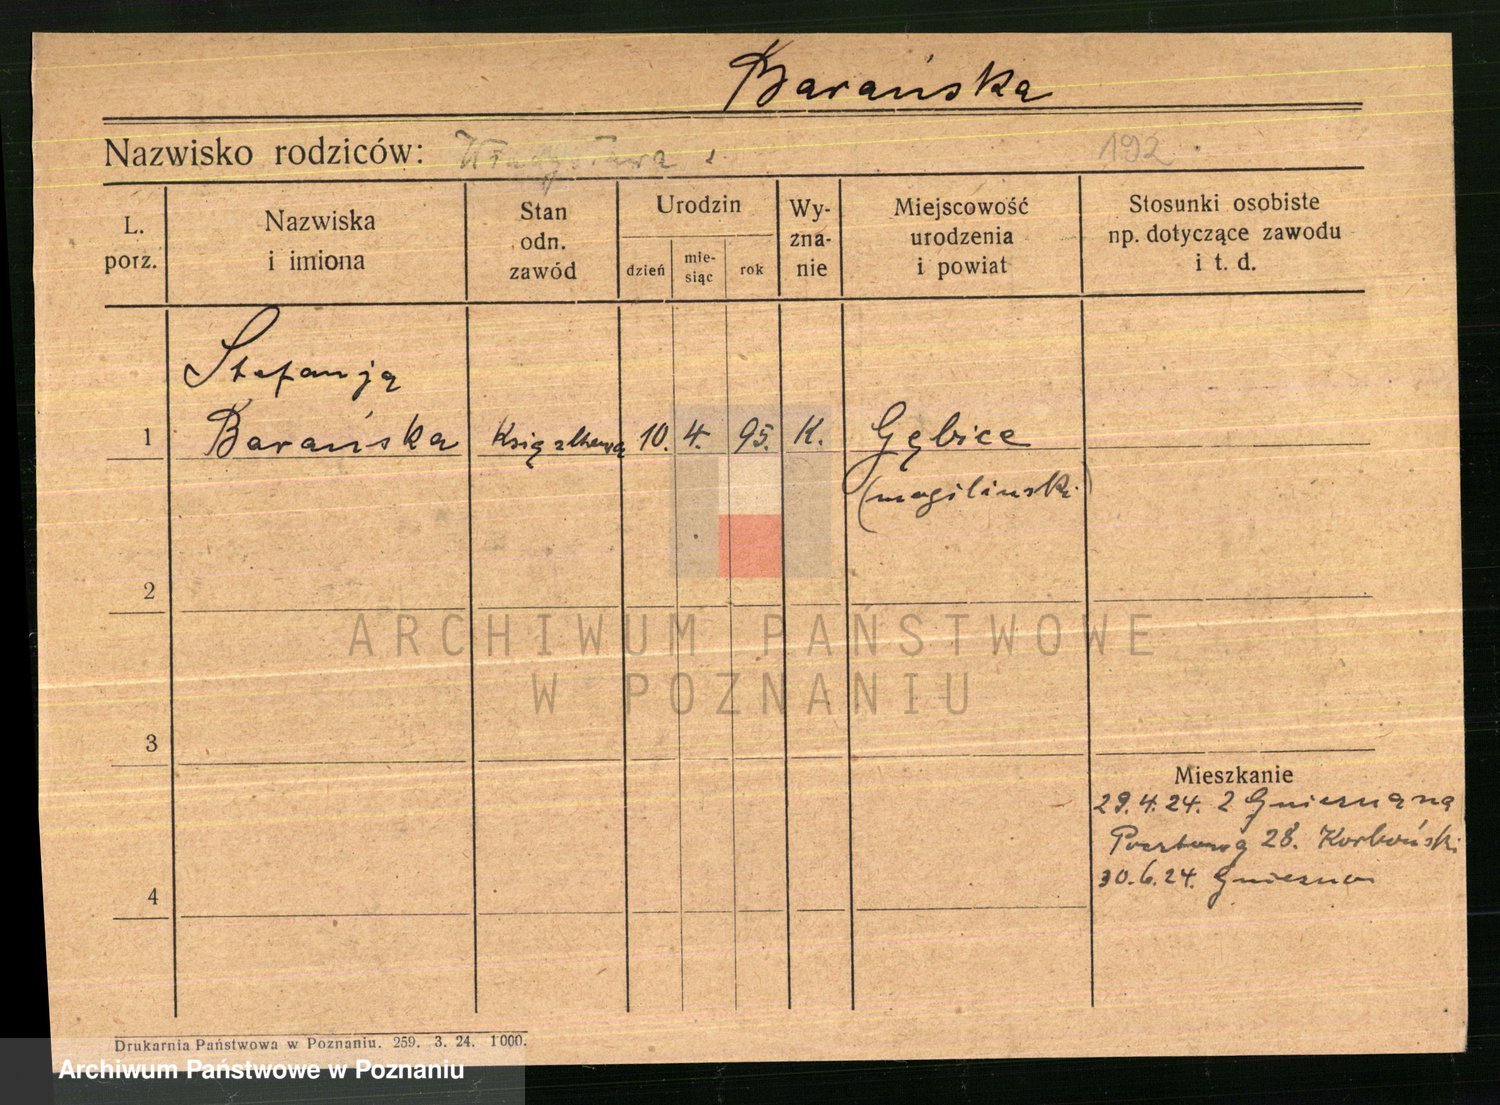 Barańska
Nazwisko rodziców:
192
L. porz.
Nazwiska i imiona
Stan odn. zawód
Urodzin
dzień
mie-siąc
rok
Wy-zna-nie
Miejscowość urodzenia i powiat
Stosunki osobiste np. dotyczące zawodu i t. d.
Stefanja
1 Barańska 10. 4. 95. K. Gębice
(mogilinski)
2
ARCHIWUM PAŃSTWOWE
W POZNANIU
3
Mieszkanie
29.4.24. z Gniezna na
Pocztowa 28. Korboński
30.6.24. Gniezno
4
Drukarnia Państwowa w Poznaniu. 259. 3. 24. 1000.
Archiwum Państwowe w Poznaniu